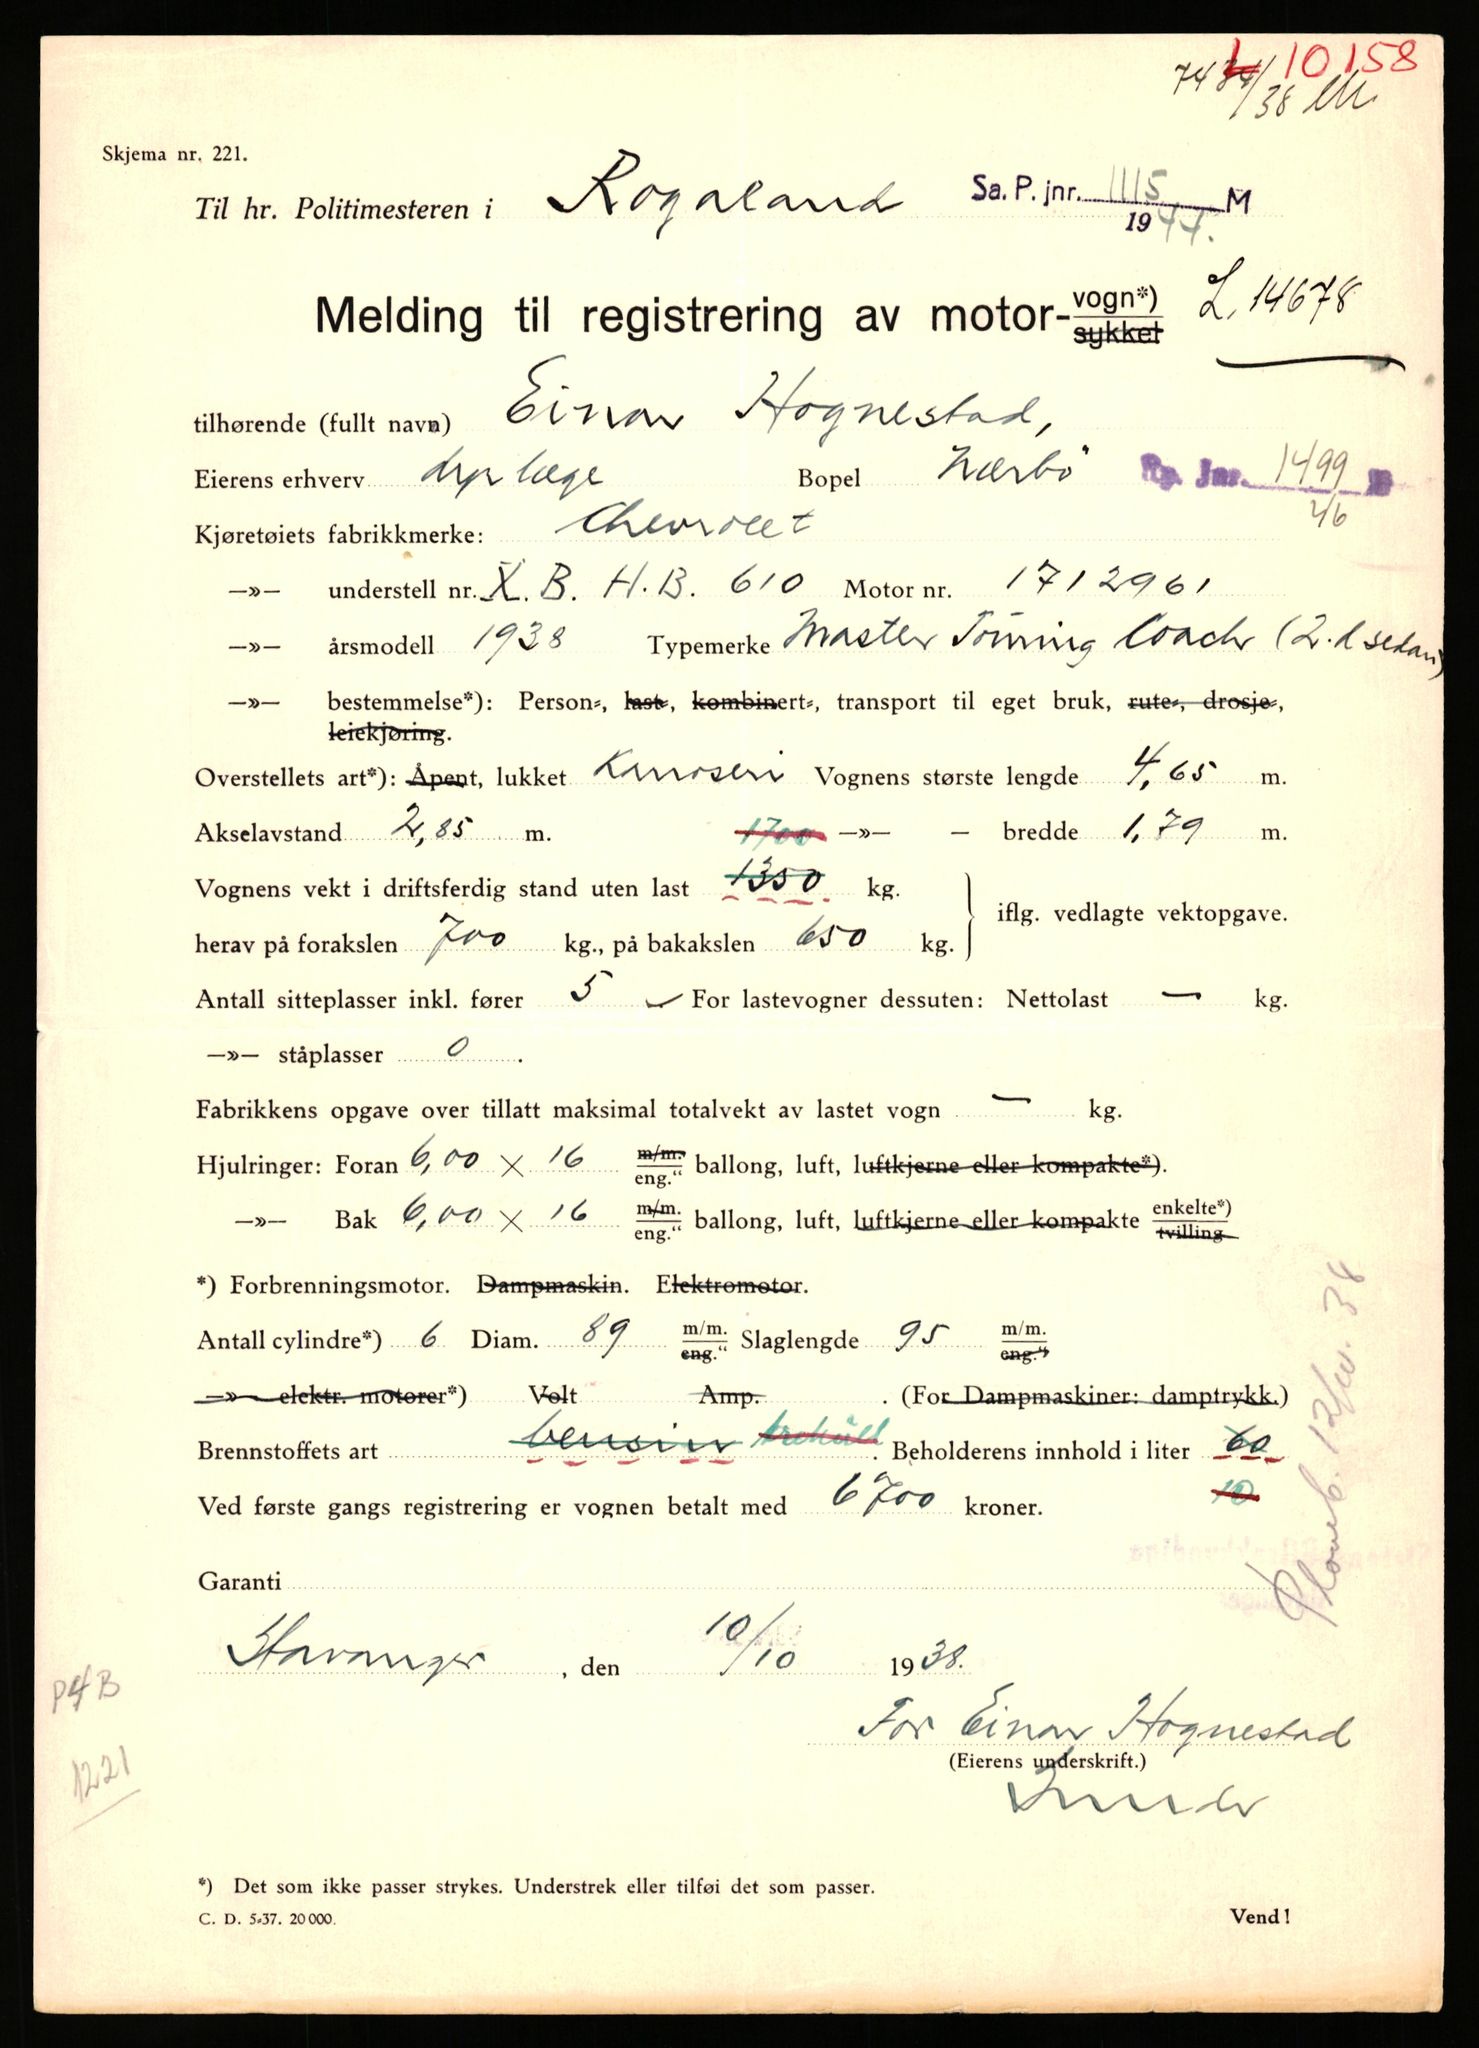 L 10158
7434/38
Skjema nr. 221.
Til hr. Politimesteren i Rogaland Sa. P. jnr. 1115 M
1944.
Melding til registrering av motor-vogn*)
sykkel
L. 14678
tilhørende (fullt navn) Einar Hognestad,
Eierens erhverv dyrlæge Bopel Nærbö Rp. Jnr. 1499
46
Kjøretøiets fabrikkmerke: Chevrolet
—»— understell nr. X. B. H. B. 610 Motor nr. 1712961
—»— årsmodell 1938 Typemerke Master Touring Coach (2. d sedan)
—»— bestemmelse*): Person-, last-, kombinert-, transport til eget bruk, rute-, drosje-,
leiekjøring.
Overstellets art*): Åpent, lukket Karroseri Vognens største lengde 4,65 m.
Akselavstand 2,85 m. 1700 —»— — bredde 1,79 m.
Vognens vekt i driftsferdig stand uten last 1350 kg.
iflg. vedlagte vektopgave.
herav på forakslen 700 kg., på bakakslen 650 kg.
Antall sitteplasser inkl. fører 5 For lastevogner dessuten: Nettolast — kg.
—»— ståplasser 0 .
Fabrikkens opgave over tillatt maksimal totalvekt av lastet vogn — kg.
Hjulringer: Foran 6,00 × 16 m/m. eng.“ ballong, luft, luftkjerne eller kompakte*).
—»— Bak 6,00 × 16 m/m. eng.“ ballong, luft, luftkjerne eller kompakte enkelte*) tvilling
*) Forbrenningsmotor. Dampmaskin. Elektromotor.
Antall cylindre*) 6 Diam. 89 m/m. eng.“ Slaglengde 95 m/m. eng.“
—»— elektr. motorer*) Volt Amp. . (For Dampmaskiner: damptrykk.)
Brennstoffets art bensin trekull. Beholderens innhold i liter 60
Ved første gangs registrering er vognen betalt med 6700 kroner. 10
Garanti
Stavanger, den 10/10 1938.
P4B
For Einar Hognestad
(Eierens underskrift.)
1221
*) Det som ikke passer strykes. Understrek eller tilføi det som passer.
C. D. 5-37. 20 000.
Vend!